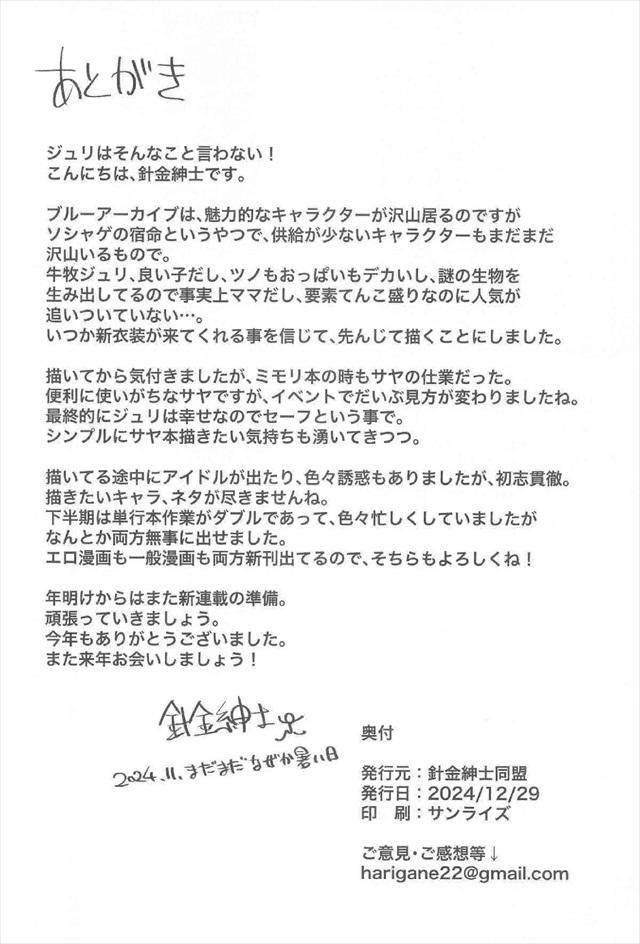 あとがき
ジュリはそんなこと言わない！
こんにちは、針金紳士です。
ブルーアーカイブは、魅力的なキャラクターが沢山居るのですが
ソシャゲの宿命というやつで、供給が少ないキャラクターもまだまだ
沢山いるもので。
牛牧ジュリ、良い子だし、ツノもおっぱいもデカいし、謎の生物を
生み出してるので事実上ママだし、要素てんこ盛りなのに人気が
追いついていない…。
いつか新衣装が来てくれる事を信じて、先んじて描くことにしました。
描いてから気付きましたが、ミモリ本の時もサヤの仕業だった。
便利に使いがちなサヤですが、イベントでだいぶ見方が変わりましたね。
最終的にジュリは幸せなのでセーフという事で。
シンプルにサヤ本描きたい気持ちも湧いてきつつ。
描いてる途中にアイドルが出たり、色々誘惑もありましたが、初志貫徹。
描きたいキャラ、ネタが尽きませんね。
下半期は単行本作業がダブルであって、色々忙しくしていましたが
なんとか両方無事に出せました。
エロ漫画も一般漫画も両方新刊出てるので、そちらもよろしくね！
年明けからはまた新連載の準備。
頑張っていきましょう。
今年もありがとうございました。
また来年お会いしましょう！
針金紳士
2024.11.まだまだなぜか暑い日
奥付
発行元：針金紳士同盟
発行日：2024/12/29
印　刷：サンライズ
ご意見・ご感想等↓
harigane22@gmail.com